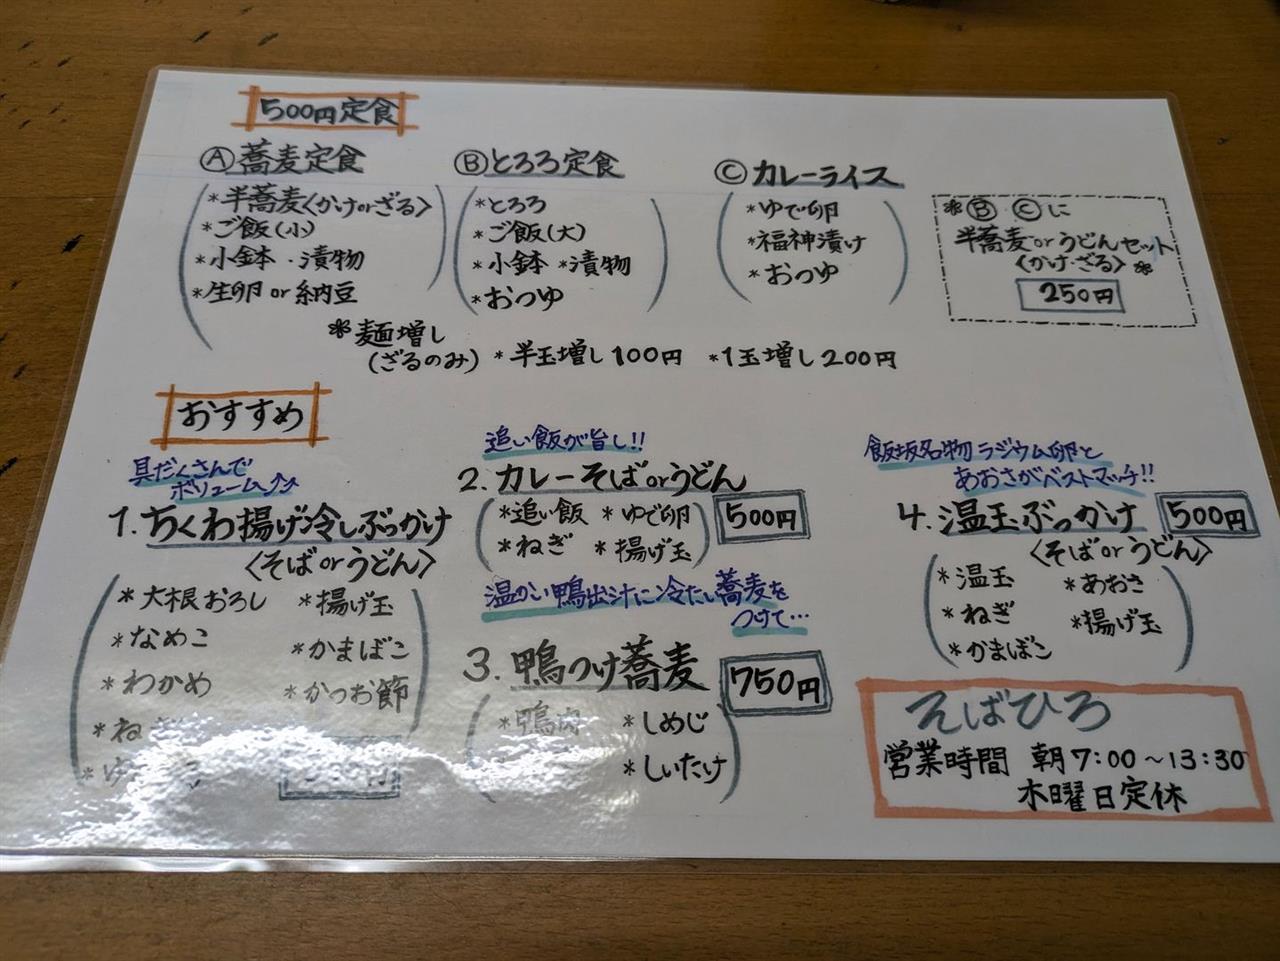 500円定食
Ⓐ蕎麦定食
*半蕎麦〈かけorざる〉
*ご飯(小)
*小鉢・漬物
*生卵 or 納豆
Ⓑとろろ定食
*とろろ
*ご飯(大)
*小鉢 *漬物
*おつゆ
Ⓒカレーライス
*ゆで卵
*福神漬け
*おつゆ
*Ⓑ Ⓒに
半蕎麦orうどんセット
〈かけ・ざる〉*
250円
*麺増し
(ざるのみ) *半玉増し100円 *1玉増し200円
おすすめ
具だくさんで
ボリューム⤴⤴
1.ちくわ揚げ冷しぶっかけ
〈そばorうどん〉
*大根おろし *揚げ玉
*なめこ *かまぼこ
*わかめ *かつお節
*ね
*ゆ
円
追い飯が旨し!!
2.カレーそばorうどん
500円
*追い飯 *ゆで卵
*ねぎ *揚げ玉
温かい鴨出汁に冷たい蕎麦を
つけて…
3.鴨つけ蕎麦
750円
*鴨肉 *しめじ
*しいたけ
飯坂名物ラジウム卵と
あおさがベストマッチ!!
4.温玉ぶっかけ
500円
〈そばorうどん〉
*温玉 *あおさ
*ねぎ *揚げ玉
*かまぼこ
そばひろ
営業時間 朝7:00~13:30
木曜日定休